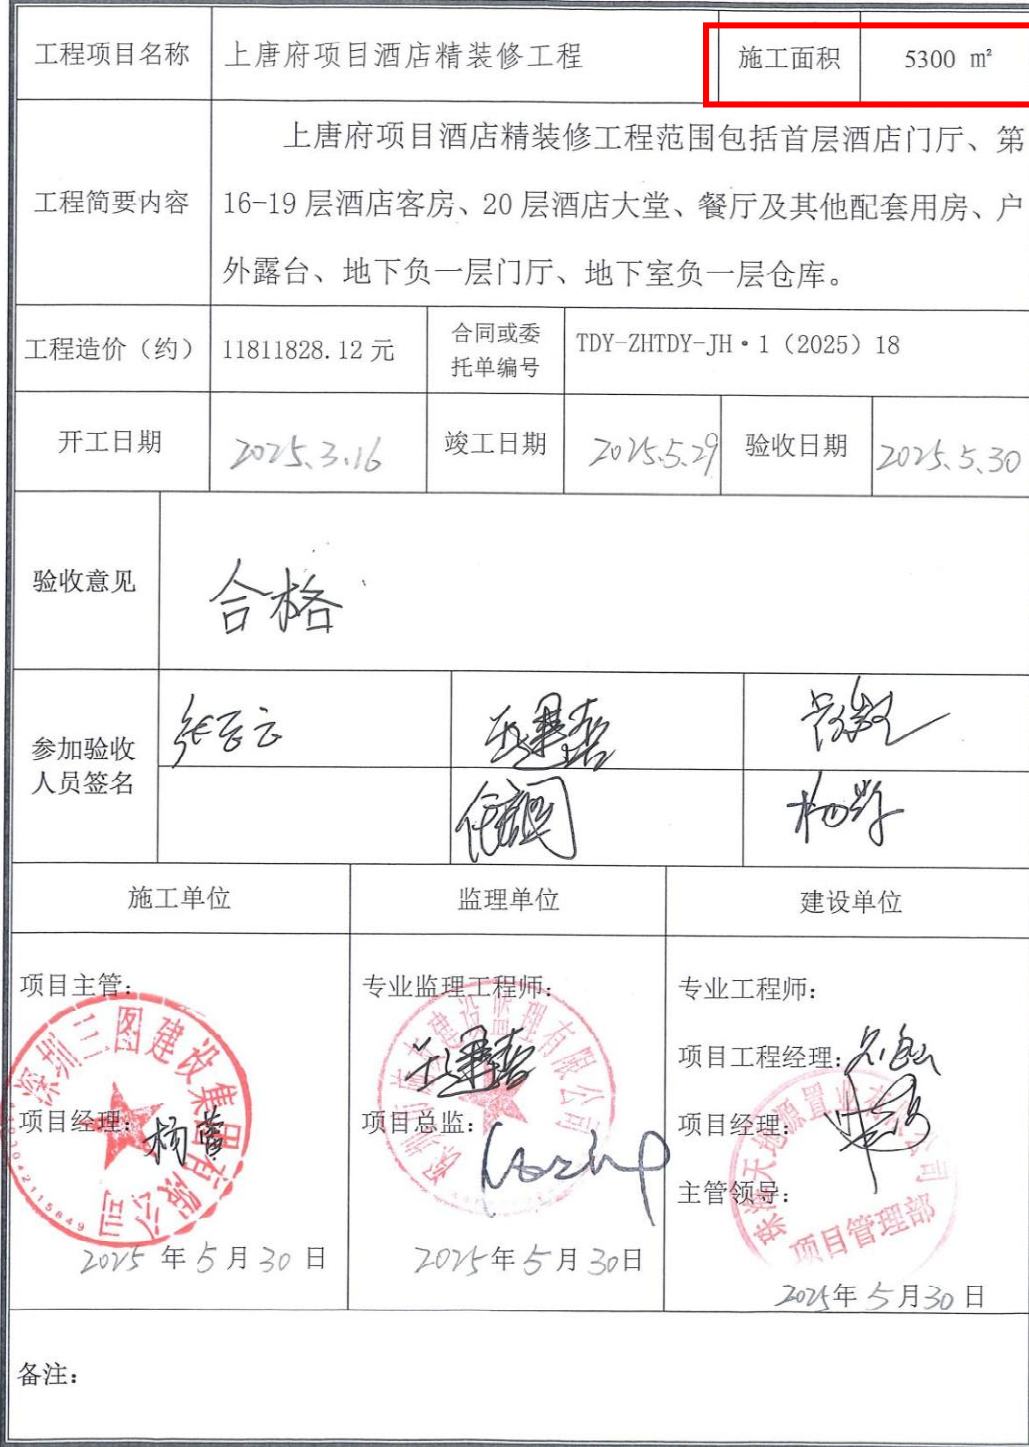 工程项目名称 上唐府项目酒店精装修工程 施工面积 5300 ㎡
工程简要内容
上唐府项目酒店精装修工程范围包括首层酒店门厅、第
16-19 层酒店客房、20 层酒店大堂、餐厅及其他配套用房、户
外露台、地下负一层门厅、地下室负一层仓库。
工程造价（约） 11811828.12 元
合同或委
托单编号
TDY-ZHTDY-JH·1（2025）18
开工日期 2025.3.16 竣工日期 2025.5.29 验收日期 2025.5.30
验收意见 合格
参加验收
人员签名
施工单位 监理单位 建设单位
项目主管：
项目经理：
深圳三图建设集团有限公司
2025 年 5 月 30 日
专业监理工程师：
项目总监：
建设监理有限公司
2025年 5 月 30日
专业工程师：
项目工程经理：
项目经理：
主管领导：
天地源置业有限公司
项目管理部
2025年 5 月 30 日
备注：